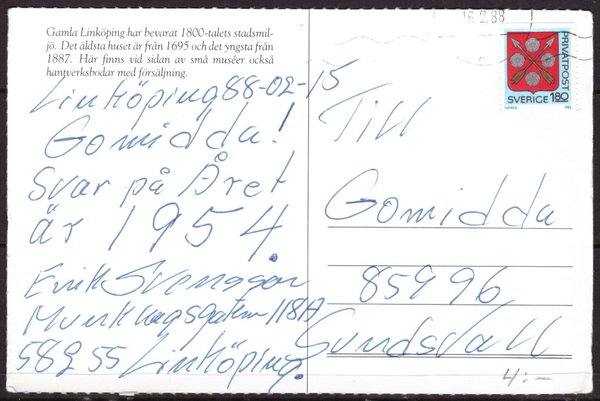 Gamla Linköping har bevarat 1800-talets stadsmil-
jö. Det äldsta huset är från 1695 och det yngsta från
1887. Här finns vid sidan av små muséer också
hantverksbodar med försäljning.
Linköping 88-02-15
Gomidda!
Svar på Året
är 1954.
Erik Svensson
Munkhagsgatan 118A
582 55 Linköping.
16.2.88
PRIVATPOST
SVERIGE 180
Till
Gomidda
85996
Sundsvall
4:-